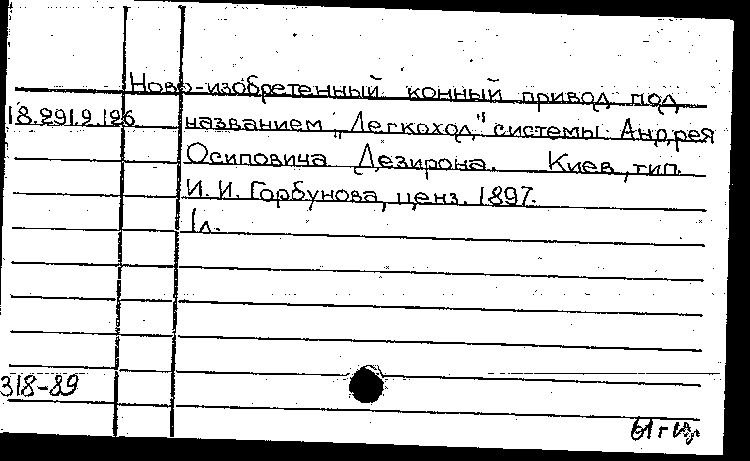 Ново-изобретенный конный привод под
18.291.2.126 названием „Легкоход" системы Андрея
Осиповича Дезирона. Киев, тип.
И. И. Горбунова, ценз. 1897.
1л.
318-89